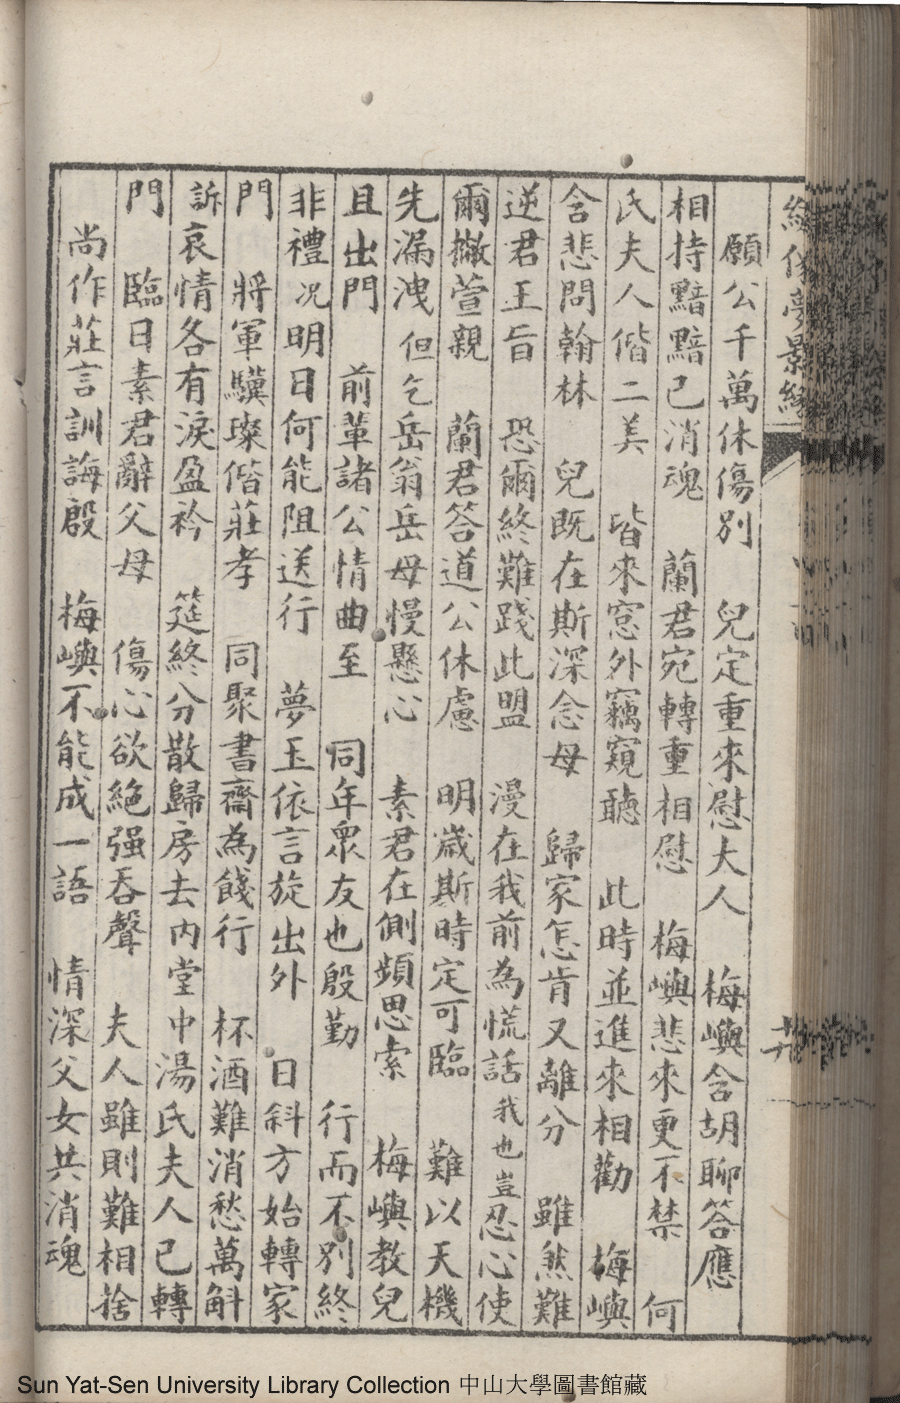 繪像夢影緣
願公千萬休傷別　兒定重來慰大人　梅嶼含胡聊答應
相持黯黯已消魂　蘭君宛轉重相慰　梅嶼悲來更不禁　何
氏夫人偕二美　皆來窓外竊窺聽　此時並進來相勸　梅嶼
含悲問翰林　兒既在斯深念母　歸家怎肯又離分　雖然難
逆君王旨　恐爾終難踐此盟　漫在我前為慌話我也豈忍心使
爾撇萱親　蘭君答道公休慮　明歲斯時定可臨　難以天機
先漏洩　但乞岳翁岳母慢懸心　素君在側頻思索　梅嶼教兒
且出門　前輩諸公情曲至　同年眾友也殷勤　行而不別終
非禮况明日何能阻送行　夢玉依言旋出外　日斜方始轉家
門　將軍驥璨偕莊孝　同聚書齋為餞行　杯酒難消愁萬斛
訴哀情各有淚盈衿　筵終分散歸房去內堂中湯氏夫人已轉
門　臨日素君辭父母　傷心欲絕强吞聲　夫人雖則難相捨
尚作莊言訓誨殷　梅嶼不能成一語　情深父女共消魂
Sun Yat-Sen University Library Collection 中山大學圖書館藏